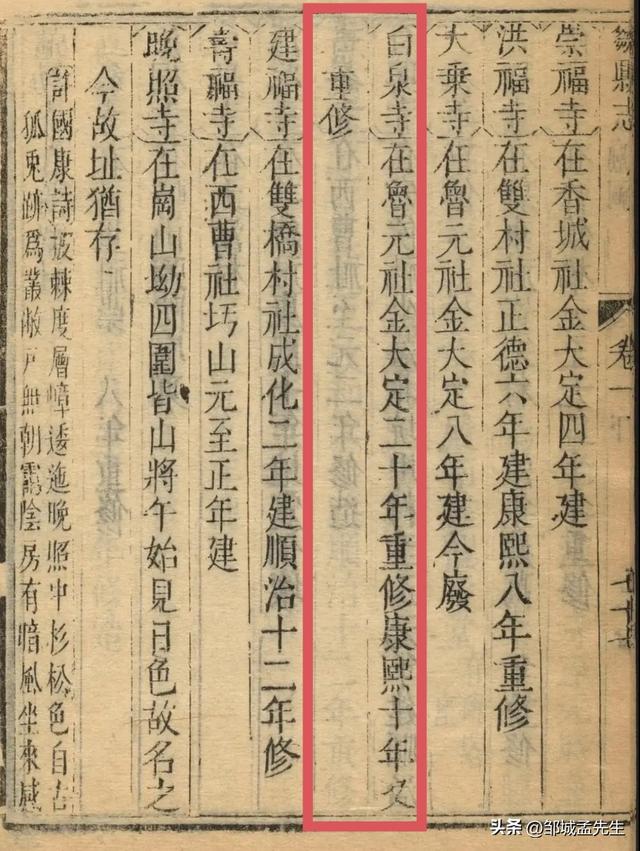 鄒縣志
卷一下
七十七
崇福寺在香城社金大定四年建
洪福寺在雙村社正德六年建康熙八年重修
大乗寺在魯元社金大定八年建今廢
白泉寺在魯元社金大定二十年重修康熙十年又
重修
建福寺在雙橋村社成化二年建順治十二年修
壽福寺在西曹社圬山元至正年建
晚照寺在崗山坳四圍皆山將午始見日色故名之
今故址猶存
許國康詩披棘度層嶂逶迤晚照中杉松色自古
狐兎跡爲叢敝戸無朝靄陰房有暗風坐來感
头条 @邹城孟先生